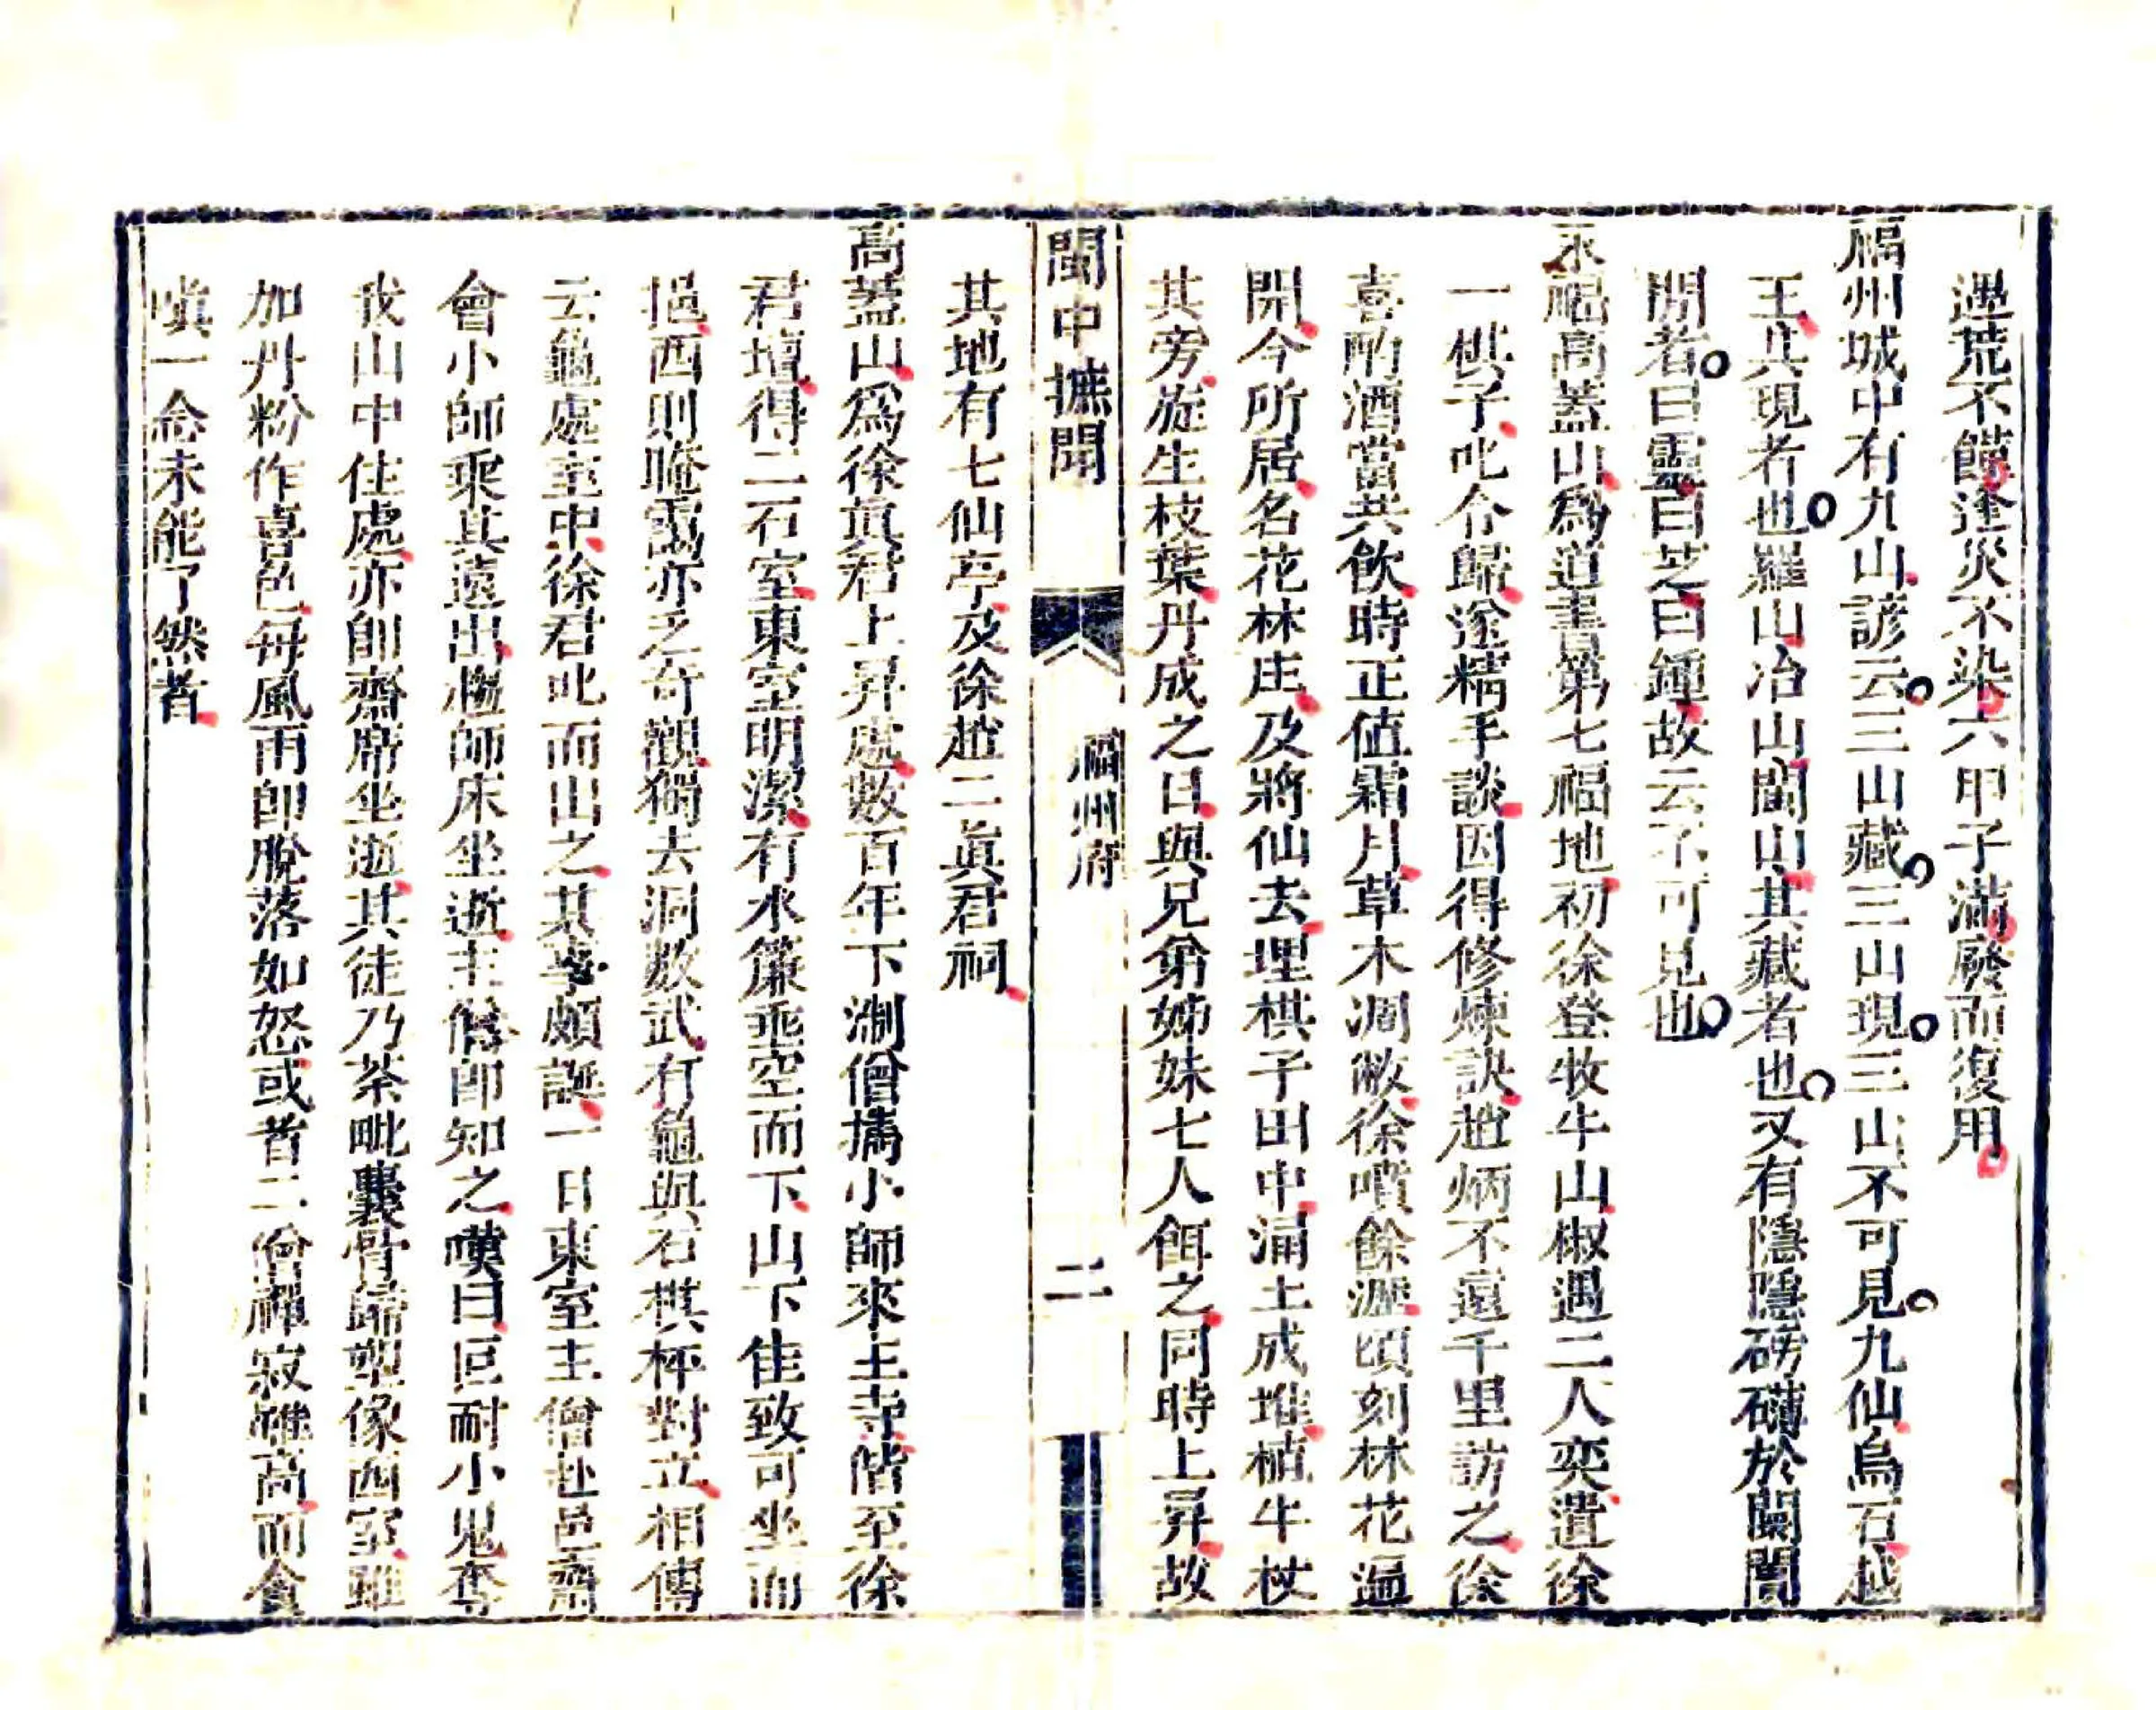 遲荒不饑逢災不染六甲子滿廢而復用
福州城中有九山諺云三山藏三山現三山不可見九仙烏石越
王其現者也羅山冶山閩山其藏者也又有隱隱磅礴於闤闠
間者曰靈曰芝曰鍾故云不可見也
永福高蓋山爲道書第七福地初徐登牧牛山椒遇二人奕遺徐
一棋子叱令歸遂精手談因得修煉訣趙炳不遠千里訪之徐
喜酌酒當共飲時正值霜月草木凋敝徐噴餘瀝頃刻林花遍
開今所居名花林庄及將仙去埋棋子田中涌土成堆植牛杖
其旁旋生枝葉丹成之日與兄弟姊妹七人餌之同時上昇故
閩中摭聞
福州府
二
其地有七仙亭及徐趙二眞君祠
高蓋山爲徐眞君上昇處數百年下澗僧携小師來主寺偕至徐
君壇得二石室東室明潔有水簾垂空而下山下佳致可坐而
挹西則晻靄亦乏奇觀獨去洞數武有龜與石棋枰對立相傳
云龜處室中徐君叱而出之其事頗誕一日東室主僧赴邑齋
會小師乘其遠出趨師床坐逝主僧卽知之嘆曰叵耐小鬼奪
我山中住處亦卽齋席坐逝其徒乃荼毗囊骨歸塑像西室雖
加丹粉作喜色每風雨卽脫落如怒或者二僧禪寂雖高而貪
嗔一念未能了然者